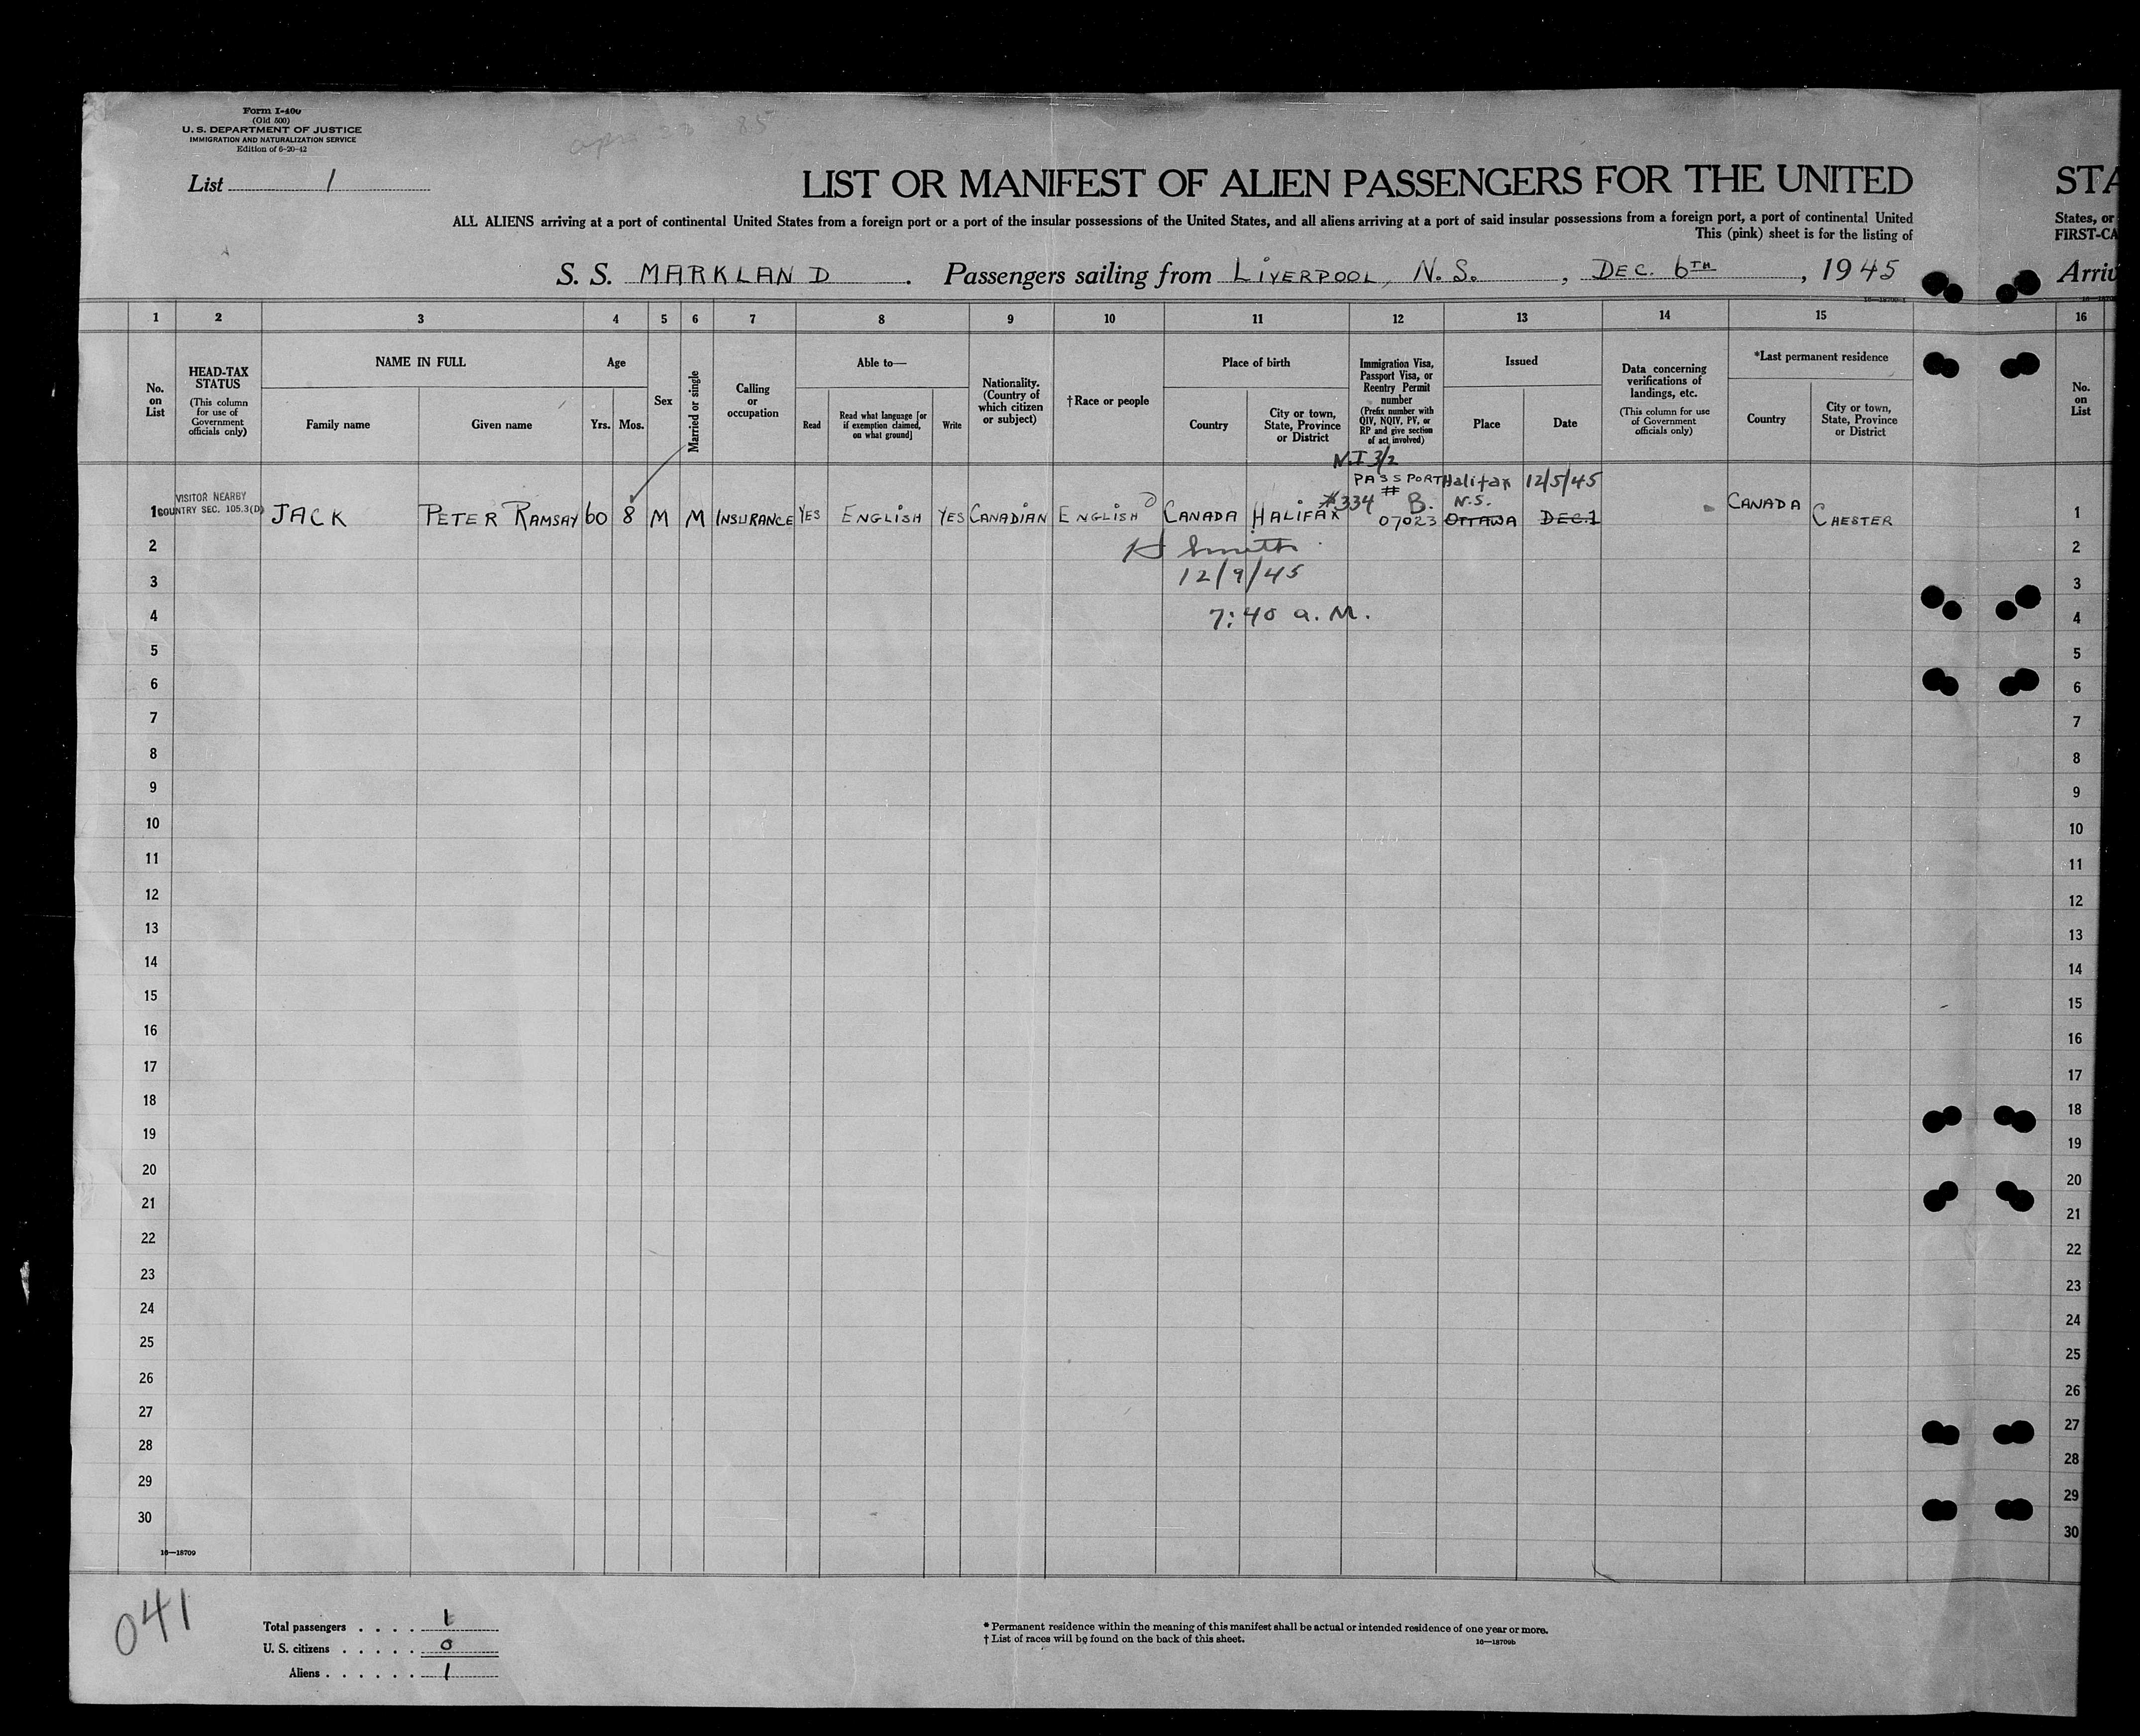 Form I-400
(Old 500)
U. S. DEPARTMENT OF JUSTICE
IMMIGRATION AND NATURALIZATION SERVICE
Edition of 6-20-42
List 1
LIST OR MANIFEST OF ALIEN PASSENGERS FOR THE UNITED
STA
ALL ALIENS arriving at a port of continental United States from a foreign port or a port of the insular possessions of the United States, and all aliens arriving at a port of said insular possessions from a foreign port, a port of continental United
States, or
This (pink) sheet is for the listing of
FIRST-CA
S. S. MARKLAND. Passengers sailing from LIVERPOOL, N. S., DEC. 6TH, 1945
Arriv
1 2 3 4 5 6 7 8 9 10 11 12 13 14 15 16
No. on List
HEAD-TAX STATUS
(This column for use of Government officials only)
NAME IN FULL
Family name
Given name
Age
Yrs.
Mos.
Sex
Married or single
Calling or occupation
Able to—
Read
Read what language [or if exemption claimed, on what ground]
Write
Nationality. (Country of which citizen or subject)
†Race or people
Place of birth
Country
City or town, State, Province or District
Immigration Visa, Passport Visa, or Reentry Permit number
(Prefix number with QIV, NQIV, PV, or RP and give section of act involved)
Issued
Place
Date
Data concerning verifications of landings, etc.
(This column for use of Government officials only)
*Last permanent residence
Country
City or town, State, Province or District
No. on List
N.I 3/2
PASSPORT Halifax 12/5/45
VISITOR NEARBY
# #334 B. N.S.
1 COUNTRY SEC. 105.3(D) JACK PETER RAMSAY 60 8 M M INSURANCE YES ENGLISH YES CANADIAN ENGLISH CANADA HALIFAX 07023 OTTAWA DEC.1 CANADA CHESTER 1
2 H Smith 2
3 12/9/45 3
4 7:40 a.M. 4
5 5
6 6
7 7
8 8
9 9
10 10
11 11
12 12
13 13
14 14
15 15
16 16
17 17
18 18
19 19
20 20
21 21
22 22
23 23
24 24
25 25
26 26
27 27
28 28
29 29
30 30
16—18709
041
Total passengers . . . . 1
U. S. citizens . . . . . 0
Aliens . . . . . . 1
* Permanent residence within the meaning of this manifest shall be actual or intended residence of one year or more.
† List of races will be found on the back of this sheet.
16—18709b